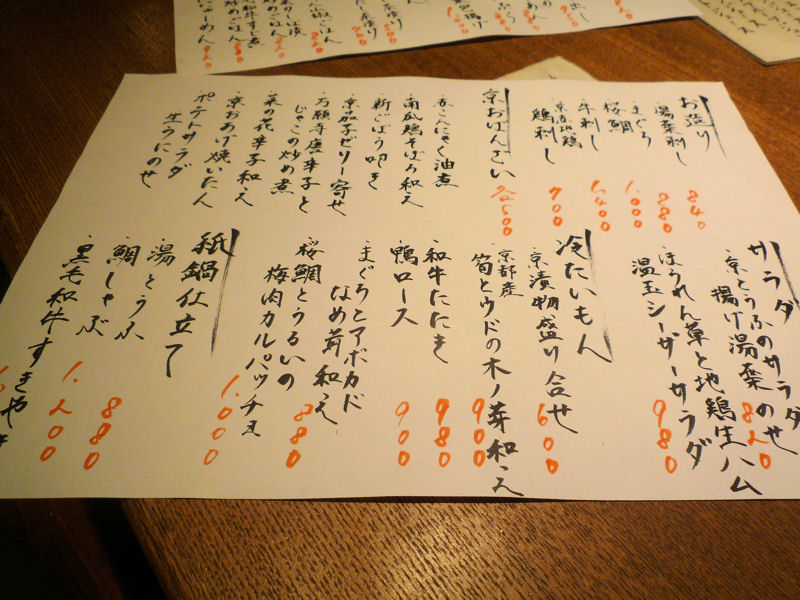 お造り
湯葉刺し 840
まぐろ 880
桜鯛 1,000
牛刺し 1,400
京赤地鶏
鶏刺し 700
京おばんざい 各500
赤こんにゃく油煮
南瓜鶏そぼろ和え
新ごぼう叩き
京茄子ゼリー寄せ
万願寺唐辛子と
じゃこの炒め煮
菜の花辛子和え
京おあげ焼いたん
ポテトサラダ
生うにのせ
サラダ
京とうふのサラダ
揚げ湯葉のせ 820
ほうれん草と地鶏生ハム
温玉シーザーサラダ 980
冷たいもん
京漬物盛り合せ 600
京都産
筍とウドの木ノ芽和え 900
和牛たたき 980
鴨ロース 900
まぐろとアボカド
なめ茸和え 880
桜鯛とうるいの
梅肉カルパッチョ 1,000
紙鍋仕立て
湯どうふ 880
鯛しゃぶ 1,200
黒毛和牛すきやき